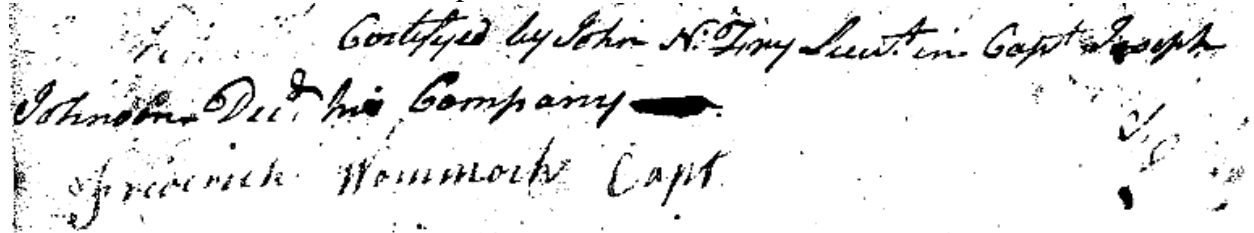 Certifyed by John N. Tiry Lieut. in Capt Joseph
Johnson Decd. his Company
Frederick Wommock Capt